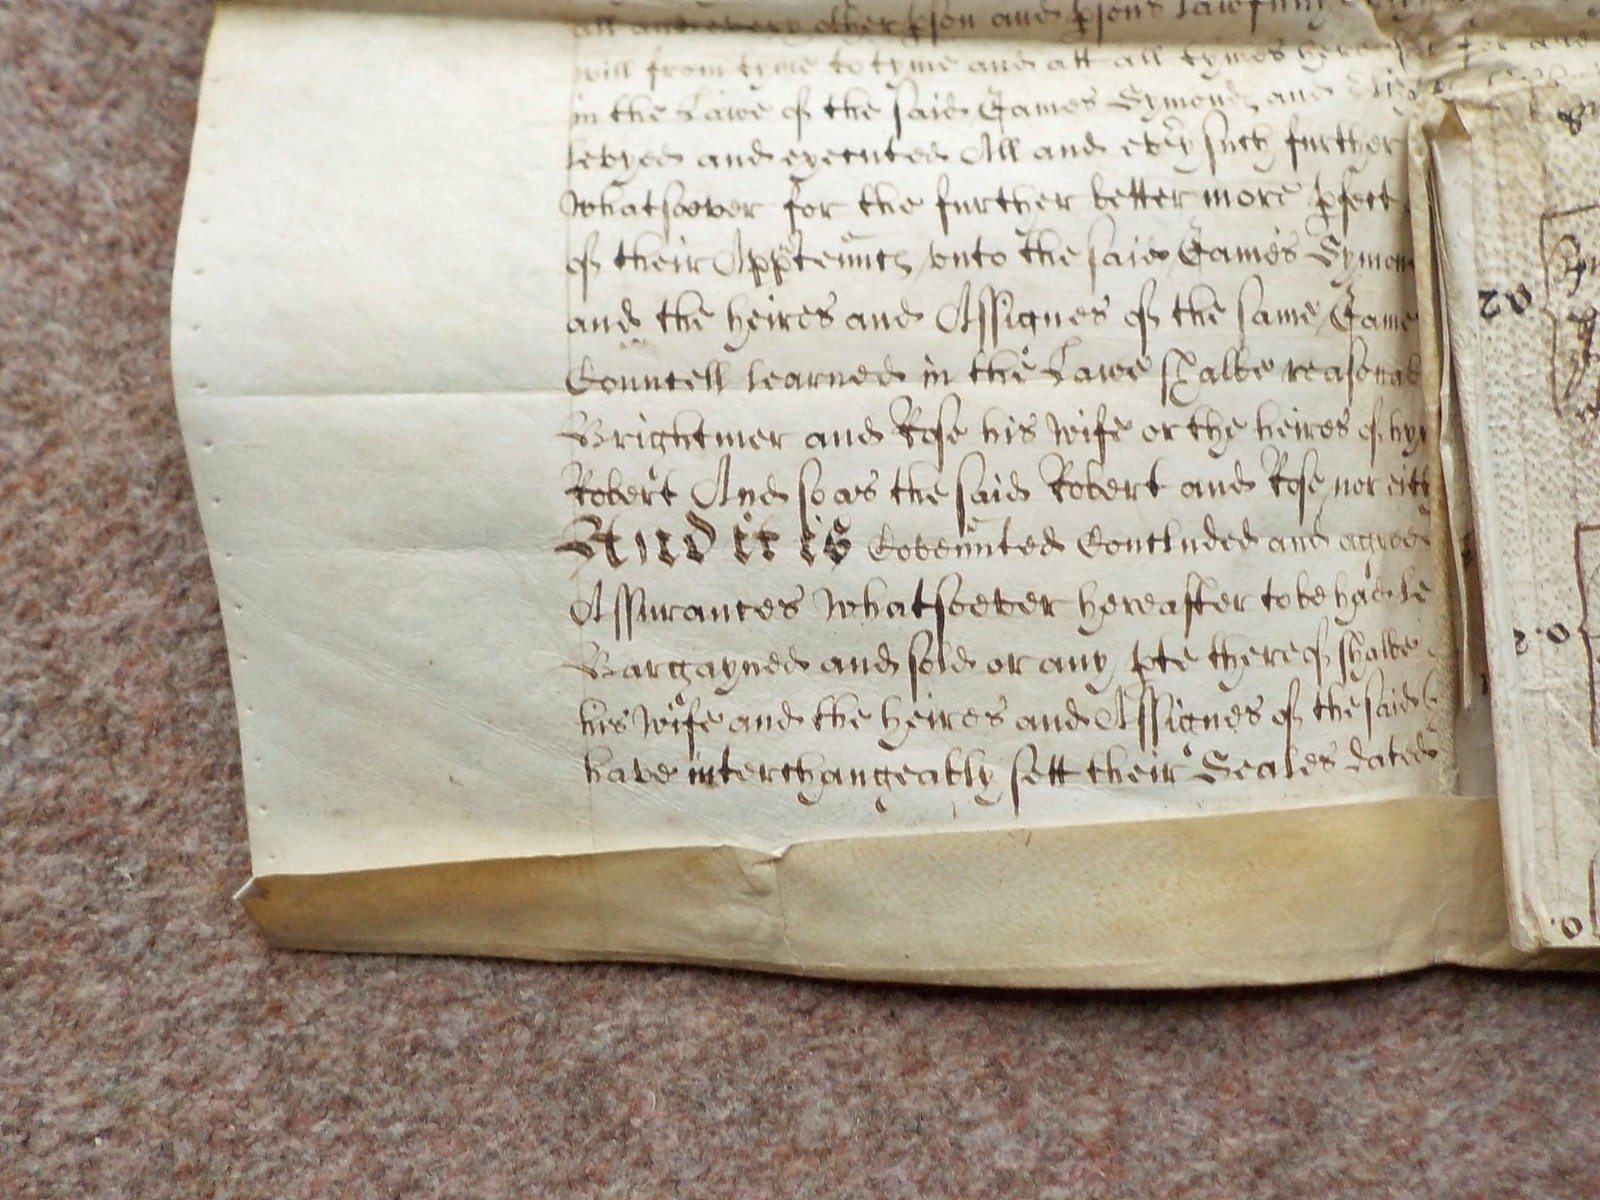 all and every other pson and psons lawfully
will from tyme to tyme and att all tymes here for and
in the Lawe of the said James Symonds and
levyed and executed All and ev'y such further
whatsoever for the further better more pfect
of their Apptennc(es) vnto the said James Symon
and the heires and Assignes of the same Jame
Councell learned in the Lawe shalbe reasonab
Brightmer and Rose his wife or the heires of hym
Robert And so as the said Robert and Rose nor eith
And it is Covennted Concluded and agreed
Assurances whatsoever hereafter to be had le
Bargayned and sold or any pte thereof shalbe
his wife and the heires and Assignes of the said
have interchangeably sett their Seales dated
02